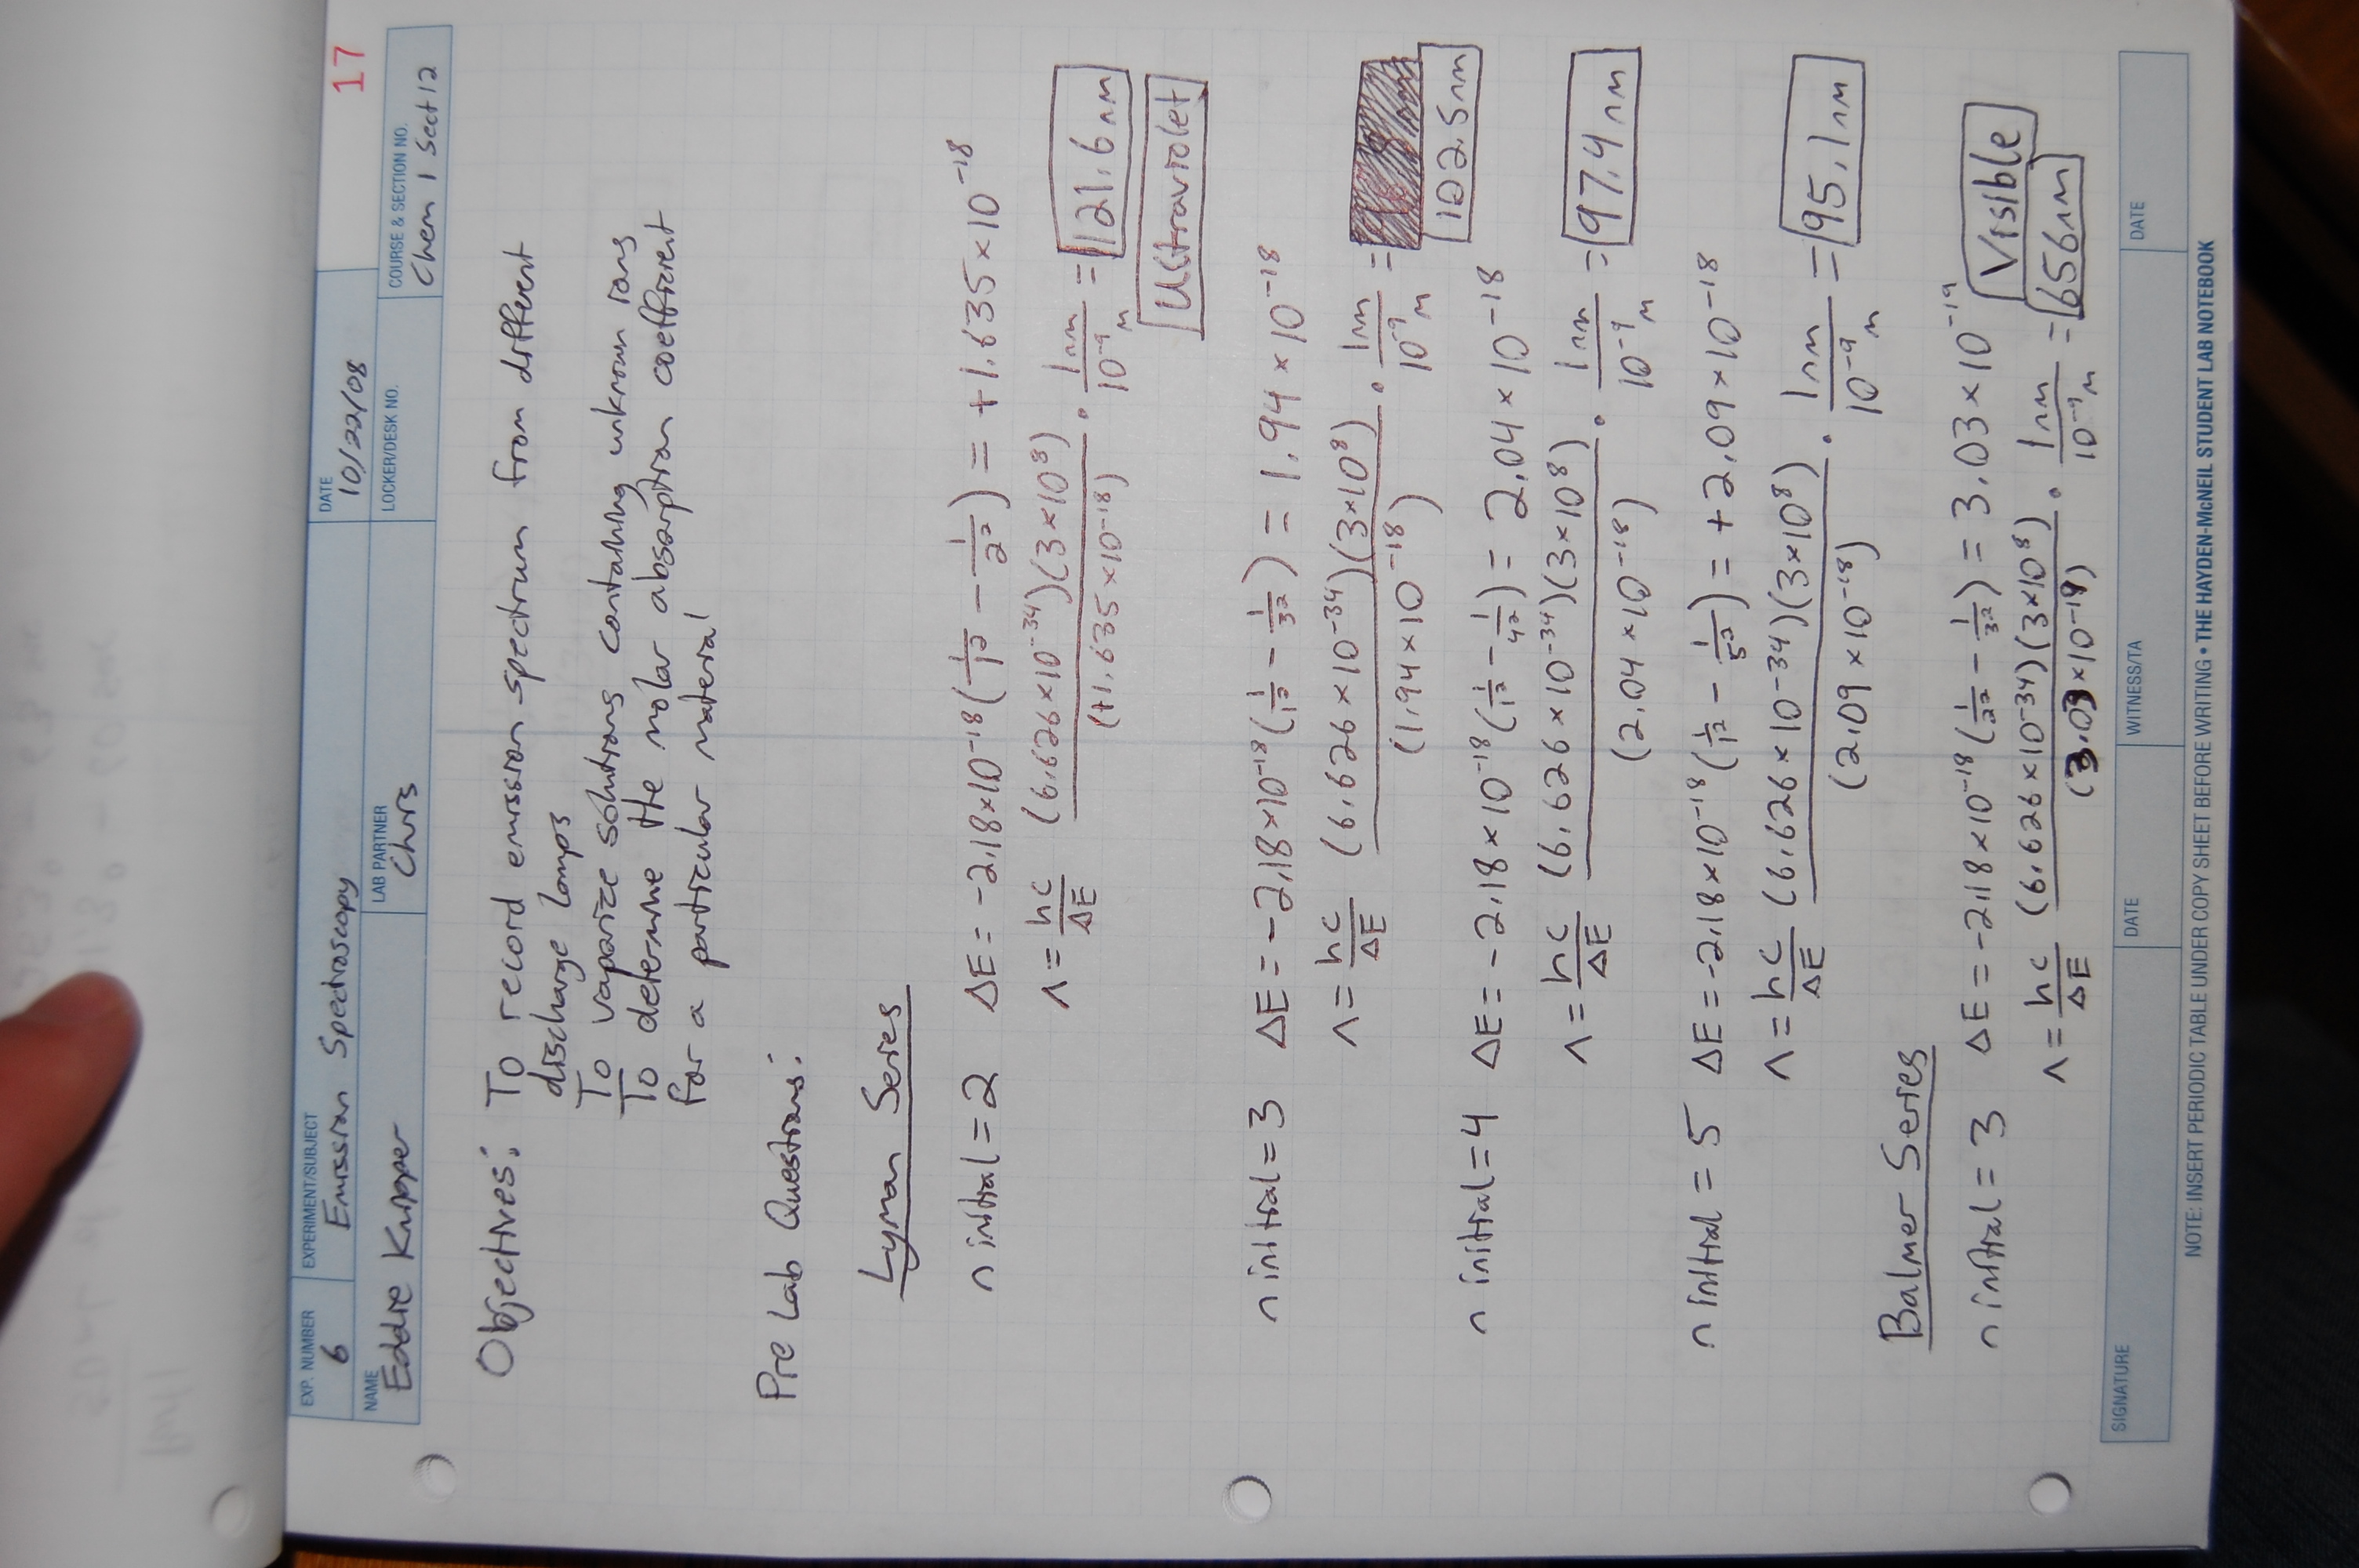 EXP. NUMBER
6
EXPERIMENT/SUBJECT
Emission Spectroscopy
DATE
10/22/08
17
NAME
Eddie
LAB PARTNER
Chris
LOCKER/DESK NO.
COURSE & SECTION NO.
Chem 1 Sect 12
Objectives: To record emission spectrum from different
discharge lamps
To vaporize solutions containing unknown ions
To determine the molar absorption coefficient
for a particular material
Pre Lab Questions:
Lyman Series
n initial = 2 ΔE = -2.18×10⁻¹⁸ (1/1² - 1/2²) = +1.635×10⁻¹⁸
λ = hc/ΔE (6.626×10⁻³⁴)(3×10⁸)/(+1.635×10⁻¹⁸) · 1nm/10⁻⁹m = 121.6nm
Ultraviolet
n initial = 3 ΔE = -2.18×10⁻¹⁸ (1/1² - 1/3²) = 1.94×10⁻¹⁸
λ = hc/ΔE (6.626×10⁻³⁴)(3×10⁸)/(1.94×10⁻¹⁸) · 1nm/10⁻⁹m =
102.5nm
n initial = 4 ΔE = -2.18×10⁻¹⁸ (1/1² - 1/4²) = 2.04×10⁻¹⁸
λ = hc/ΔE (6.626×10⁻³⁴)(3×10⁸)/(2.04×10⁻¹⁸) · 1nm/10⁻⁹m = 97.4nm
n initial = 5 ΔE = -2.18×10⁻¹⁸ (1/1² - 1/5²) = +2.09×10⁻¹⁸
λ = hc/ΔE (6.626×10⁻³⁴)(3×10⁸)/(2.09×10⁻¹⁸) · 1nm/10⁻⁹m = 95.1nm
Balmer Series
n initial = 3 ΔE = -2.18×10⁻¹⁸ (1/2² - 1/3²) = 3.03×10⁻¹⁹ Visible
λ = hc/ΔE (6.626×10⁻³⁴)(3×10⁸)/(3.03×10⁻¹⁹) · 1nm/10⁻⁹m = 656nm
SIGNATURE
DATE
WITNESS/TA
DATE
NOTE: INSERT PERIODIC TABLE UNDER COPY SHEET BEFORE WRITING • THE HAYDEN-McNEIL STUDENT LAB NOTEBOOK